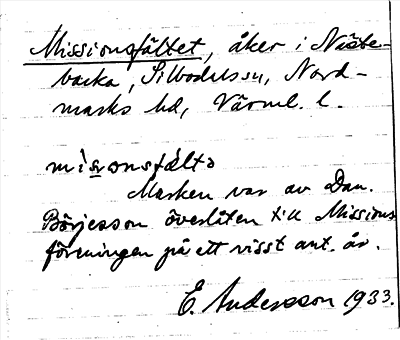 Missionsfältet, åker i Näste-
backa, Silbodals sn, Nord-
marks hd, Värml. l.
misonsfälta
Marken var av Dan.
Börjesson överlåten till Missions
föreningen på ett visst ant. år.
E. Andersson 1933.